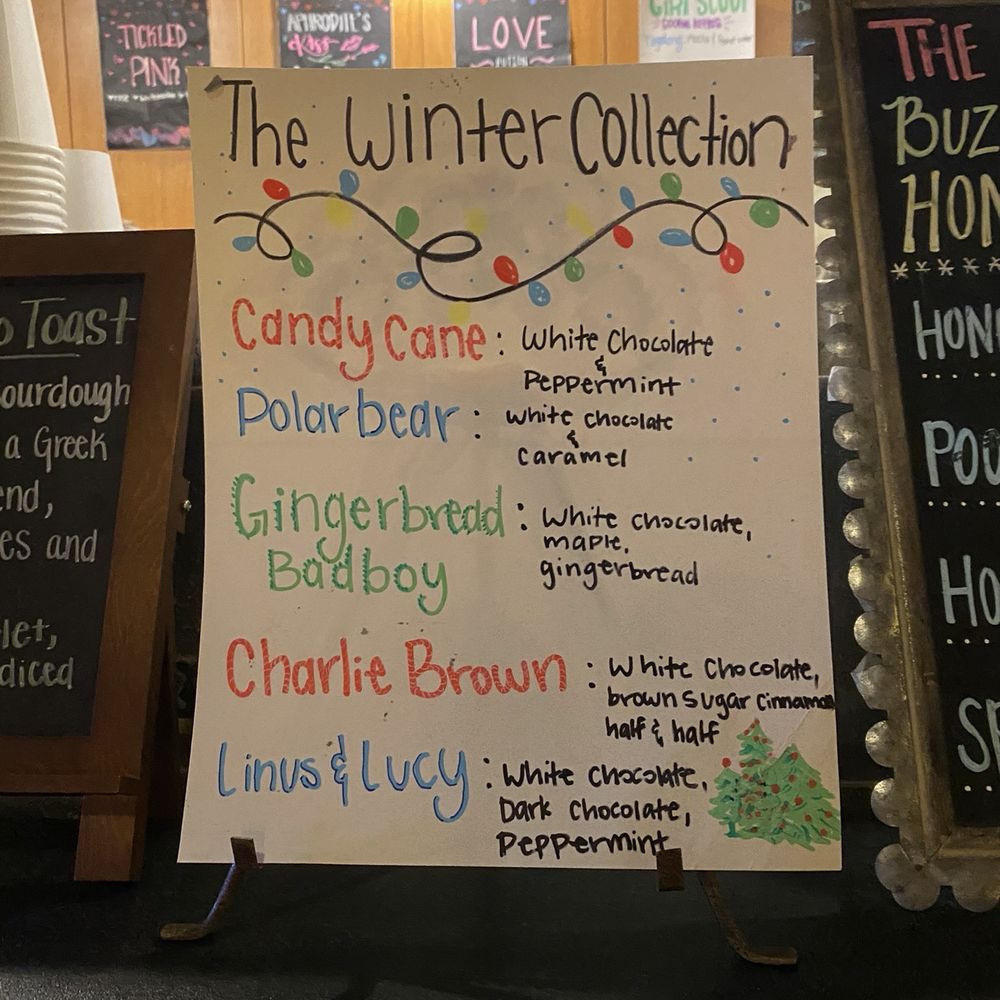 TICKLED
PINK
APHRODITE'S
Kiss
LOVE
POTION
GIRL SCOUT
The Winter Collection
Candy Cane: White Chocolate
&
Peppermint
Polar bear: white chocolate
&
caramel
Gingerbread Badboy: White chocolate,
maple,
gingerbread
Charlie Brown: White Chocolate,
brown sugar cinnamon
half & half
Linus & Lucy: White chocolate,
Dark Chocolate,
Peppermint
o Toast
ourdough
a Greek
end,
es and
let,
diced
THE
BUZ
HON
****
HONE
POU
HO
SP